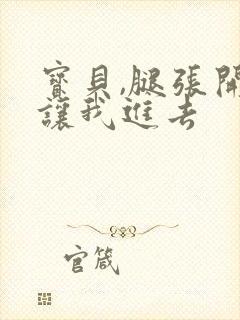 寶貝,腿張開
讓我進去
官箴